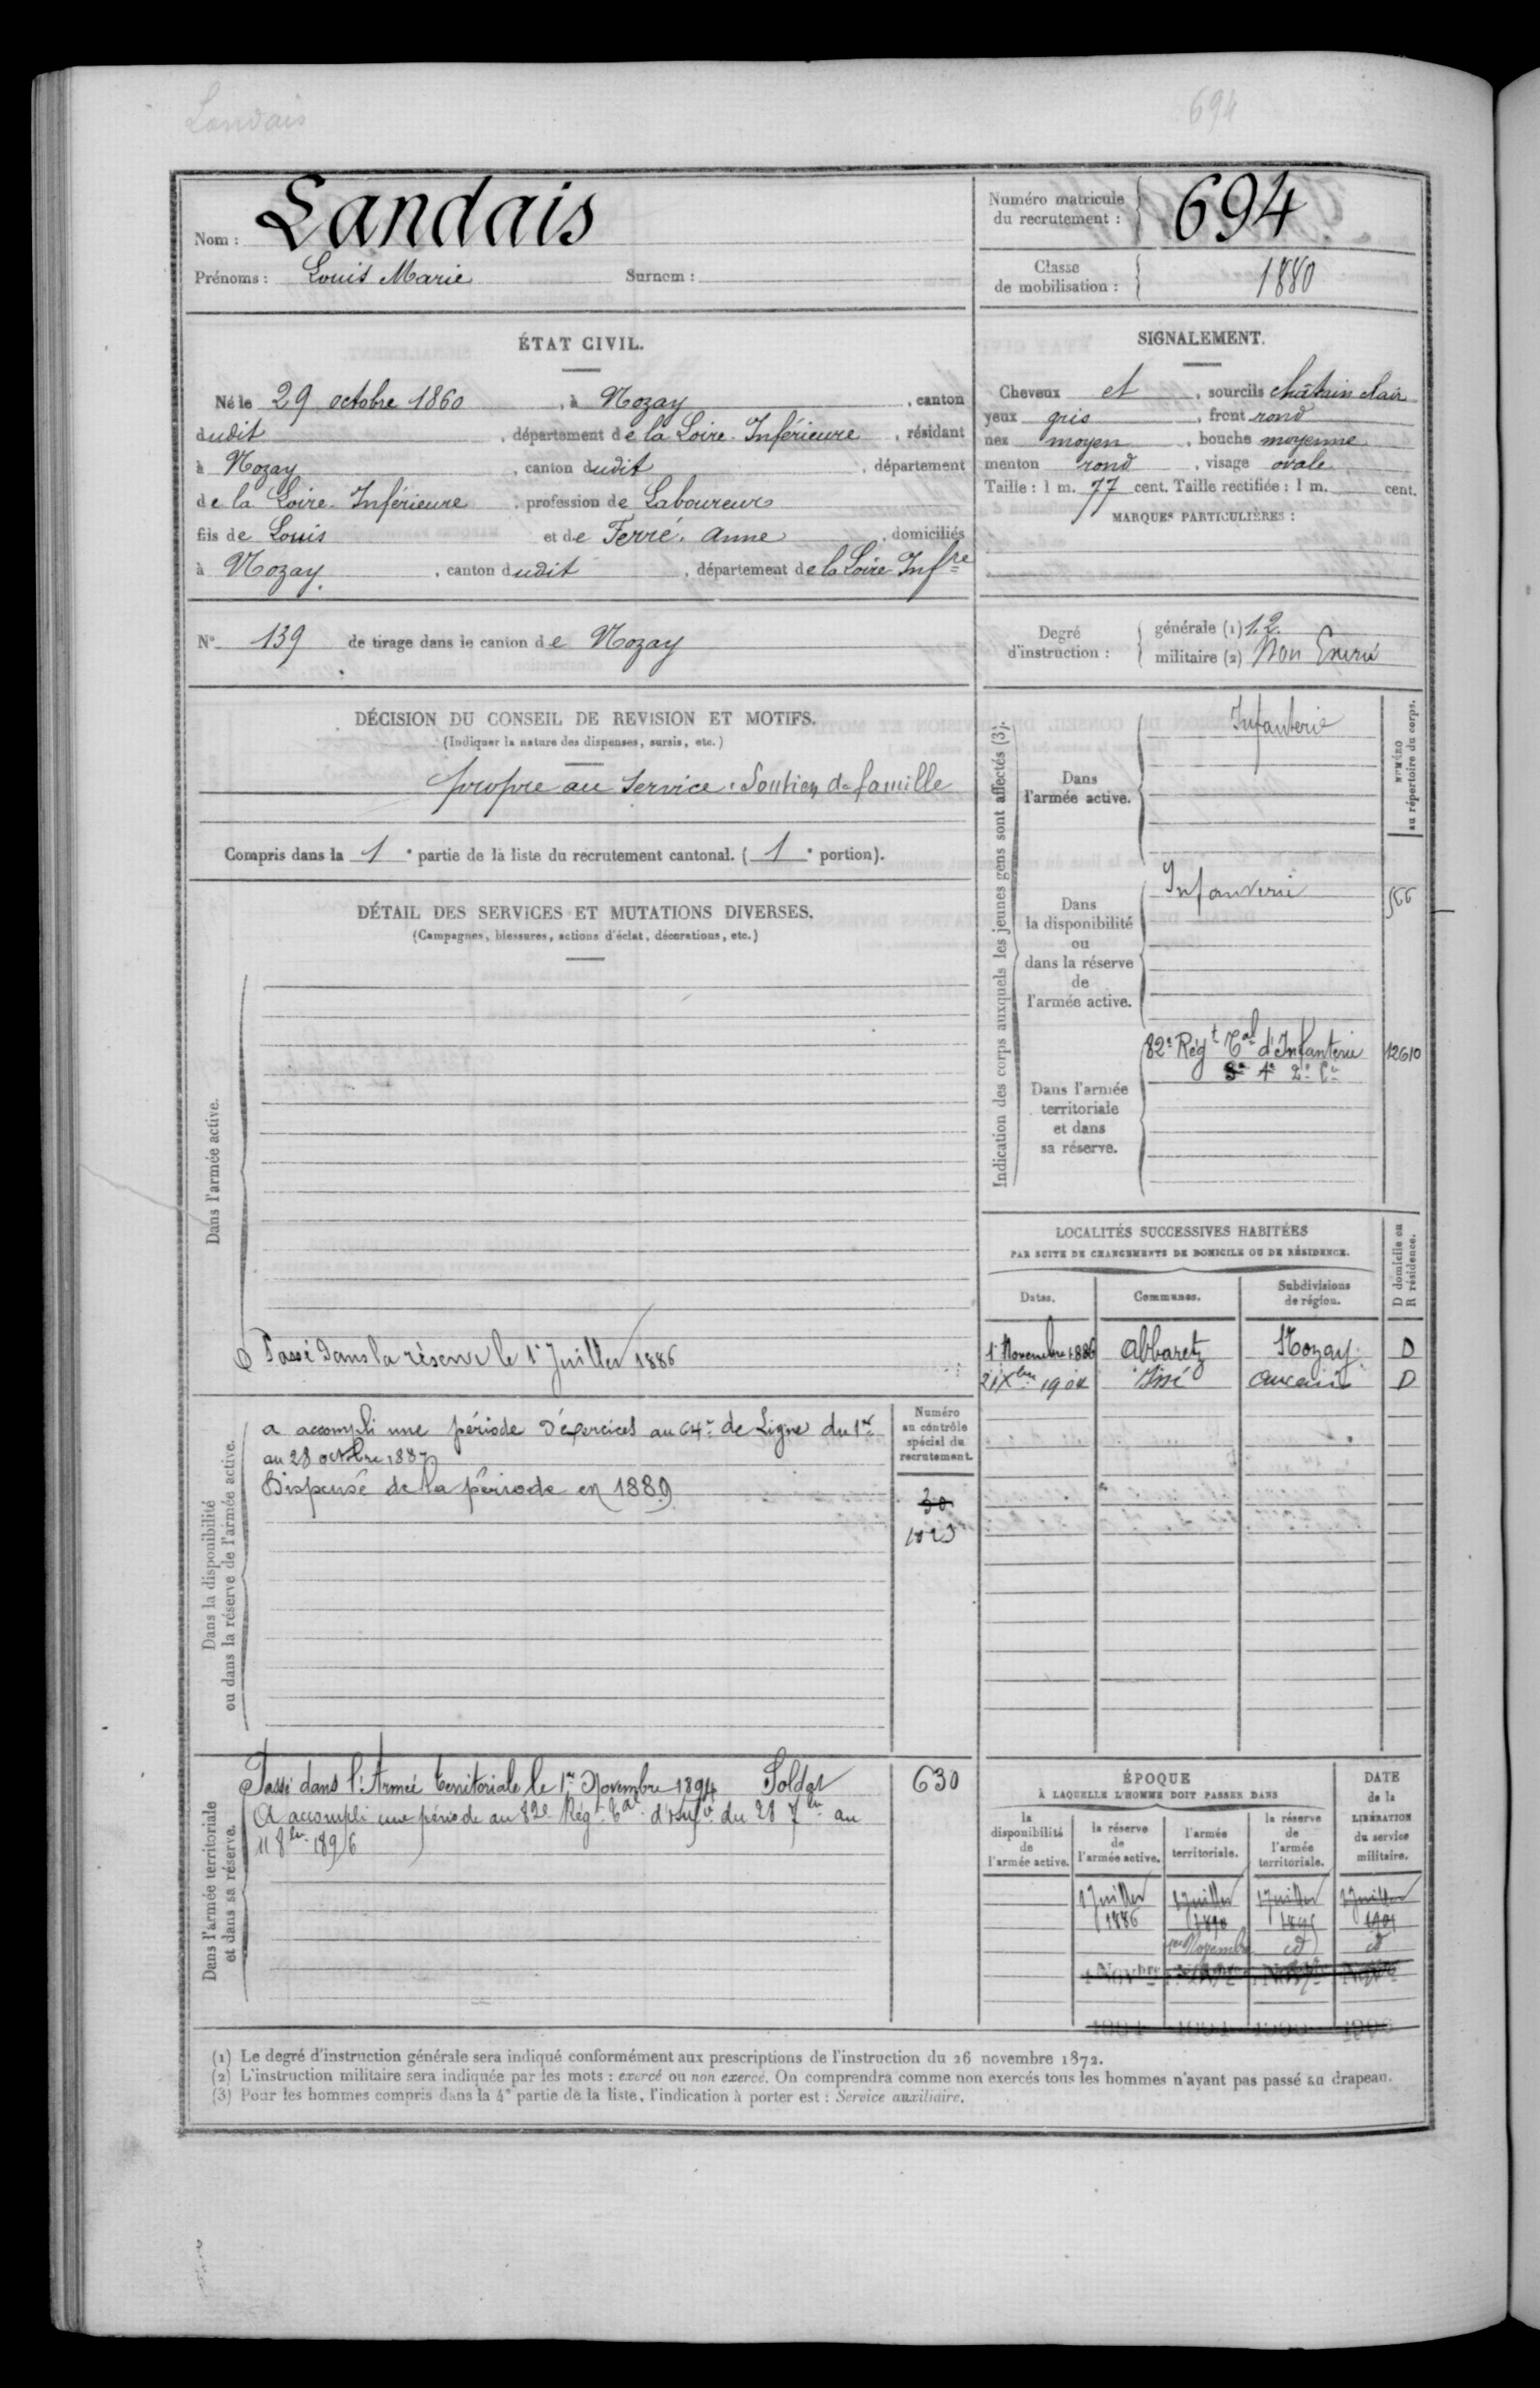 Landais
694
Nom : Landais
Prénoms : Louis Marie Surnom :
Numéro matricule
du recrutement : 694
Classe
de mobilisation : 1880
ÉTAT CIVIL.
Né le 29 octobre 1860, à Nozay, canton
dudit, département de la Loire-Inférieure, résidant
à Nozay, canton dudit, département
de la Loire-Inférieure, profession de Laboureur
fils de Louis et de Ferré, Anne, domiciliés
à Nozay, canton dudit, département de la Loire Infre
SIGNALEMENT.
Cheveux et, sourcils châtain clair
yeux gris, front rond
nez moyen, bouche moyenne
menton rond, visage ovale
Taille : 1 m. 77 cent. Taille rectifiée : 1 m. cent.
MARQUES PARTICULIÈRES :
N° 139 de tirage dans le canton de Nozay
Degré
d'instruction :
générale (1) 1.2.
militaire (2) Non Exercé
DÉCISION DU CONSEIL DE REVISION ET MOTIFS.
(Indiquer la nature des dispenses, sursis, etc.)
propre au service. Soutien de famille
Compris dans la 1e partie de la liste du recrutement cantonal. (1e portion).
DÉTAIL DES SERVICES ET MUTATIONS DIVERSES.
(Campagnes, blessures, actions d'éclat, décorations, etc.)
Dans l'armée active.
Passé dans la réserve le 1er Juillet 1886
Indication des corps auxquels les jeunes gens sont affectés (3).
NUMÉRO
au répertoire du corps.
Dans
l'armée active.
Infanterie
Dans
la disponibilité
ou
dans la réserve
de
l'armée active.
Infanterie
566
Dans l'armée
territoriale
et dans
sa réserve.
82e Régt Tal d'Infanterie 12610
4e 2e Cie
LOCALITÉS SUCCESSIVES HABITÉES
PAR SUITE DE CHANGEMENTS DE DOMICILE OU DE RÉSIDENCE.
D domicile ou
R résidence.
Dates. Communes. Subdivisions
de région.
1er Novembre 1886 Abbaretz Nozay D
21 Xbre 1904 Issé Ancenis D
Dans la disponibilité
ou dans la réserve de l'armée active.
a accompli une période d'exercices au 64e de Ligne du 1er
au 28 octobre 1887
Dispensé de la période en 1889
Numéro
au contrôle
spécial du
recrutement.
30
1023
Dans l'armée territoriale
et dans sa réserve.
Passé dans l'Armée territoriale le 1er Novembre 1894 Soldat
A accompli une période au 82e Régt Tal d'Infie du 28 7bre au
11 8bre 1896
630
ÉPOQUE
À LAQUELLE L'HOMME DOIT PASSER DANS
DATE
de la
LIBÉRATION
du service
militaire.
la
disponibilité
de
l'armée active.
la réserve
de
l'armée active.
l'armée
territoriale.
la réserve
de
l'armée
territoriale.
1 Juillet 1 Juillet 1 Juillet 1 Juillet
1886 1890 1895 1901
1er Novembre
(1) Le degré d'instruction générale sera indiqué conformément aux prescriptions de l'instruction du 26 novembre 1872.
(2) L'instruction militaire sera indiquée par les mots : exercé ou non exercé. On comprendra comme non exercés tous les hommes n'ayant pas passé au drapeau.
(3) Pour les hommes compris dans la 4e partie de la liste, l'indication à porter est : Service auxiliaire.